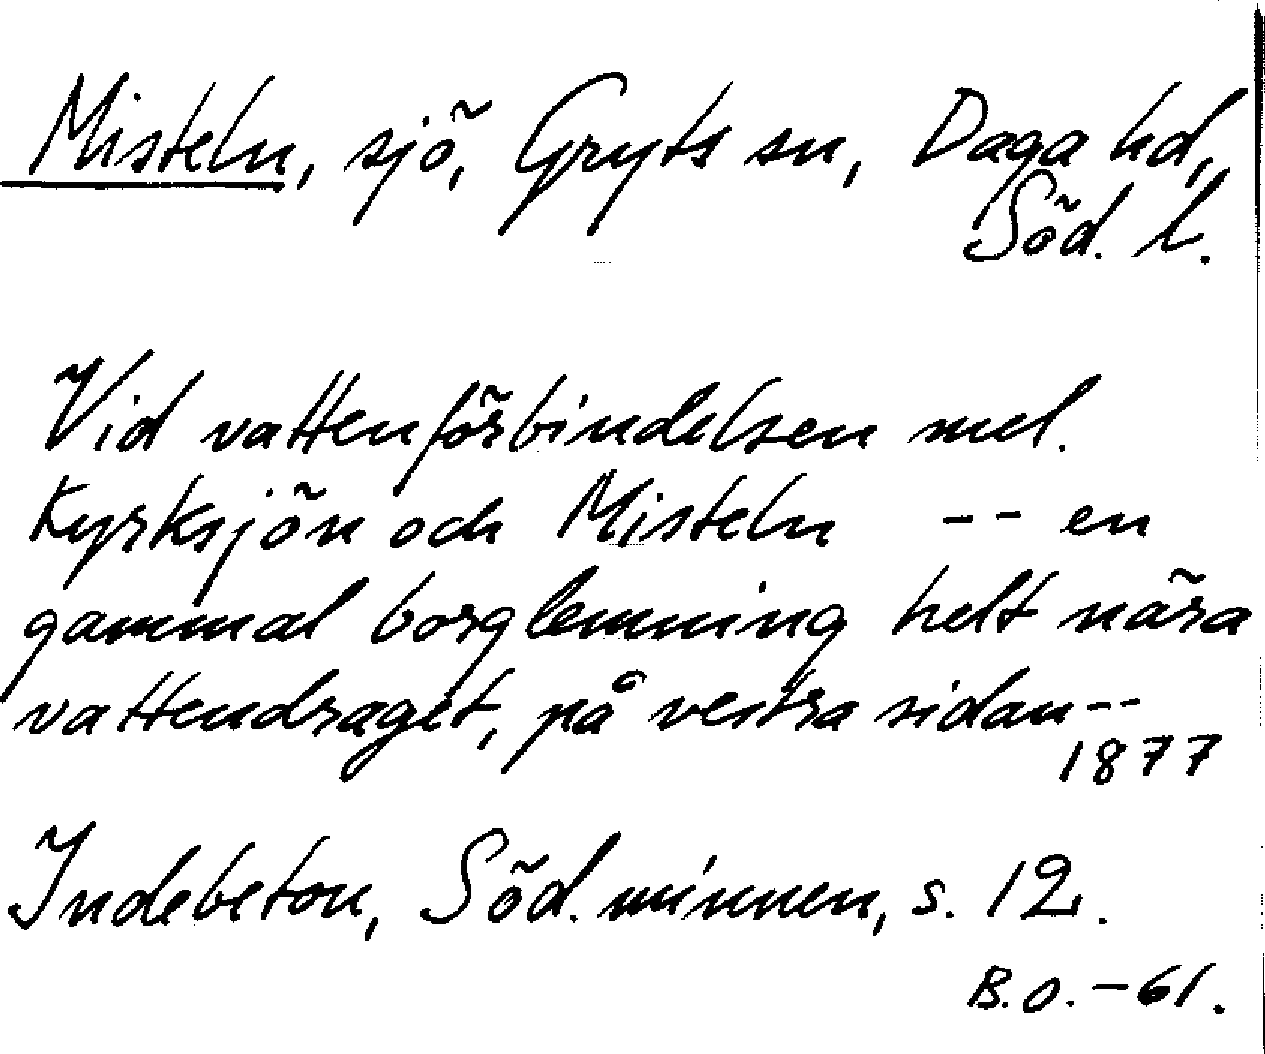 Misteln, sjö, Gryts sn, Daga hd,
Söd. l.
Vid vattenförbindelsen mel.
Kyrksjön och Misteln -- en
gammal borglemning helt nära
vattendraget, på vestra sidan--
1877
Indebetou, Söd. minnen, s. 12.
B.O. -61.